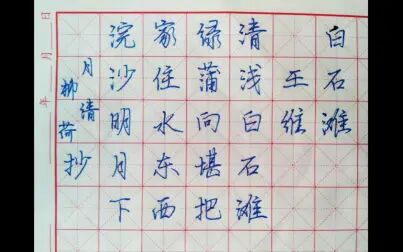 白石滩
王维
清浅白石滩
绿蒲向堪把
家住水东西
浣沙明月下
月柳清荷抄
年月日